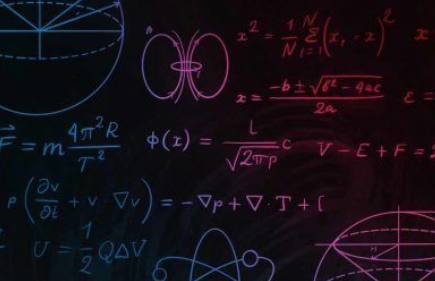 x² = 1/N N Σ i=1 (x, - x)²
x
x = -b ± √b² - 4ac / 2a
ε =
F⃗ = m 4π²R / T²
φ(x) = L / √2πρ c
V - E + F = 2
ρ(∂v/∂t + v · ∇v) = -∇p + ∇ · T + f
U = 1/2 QΔV